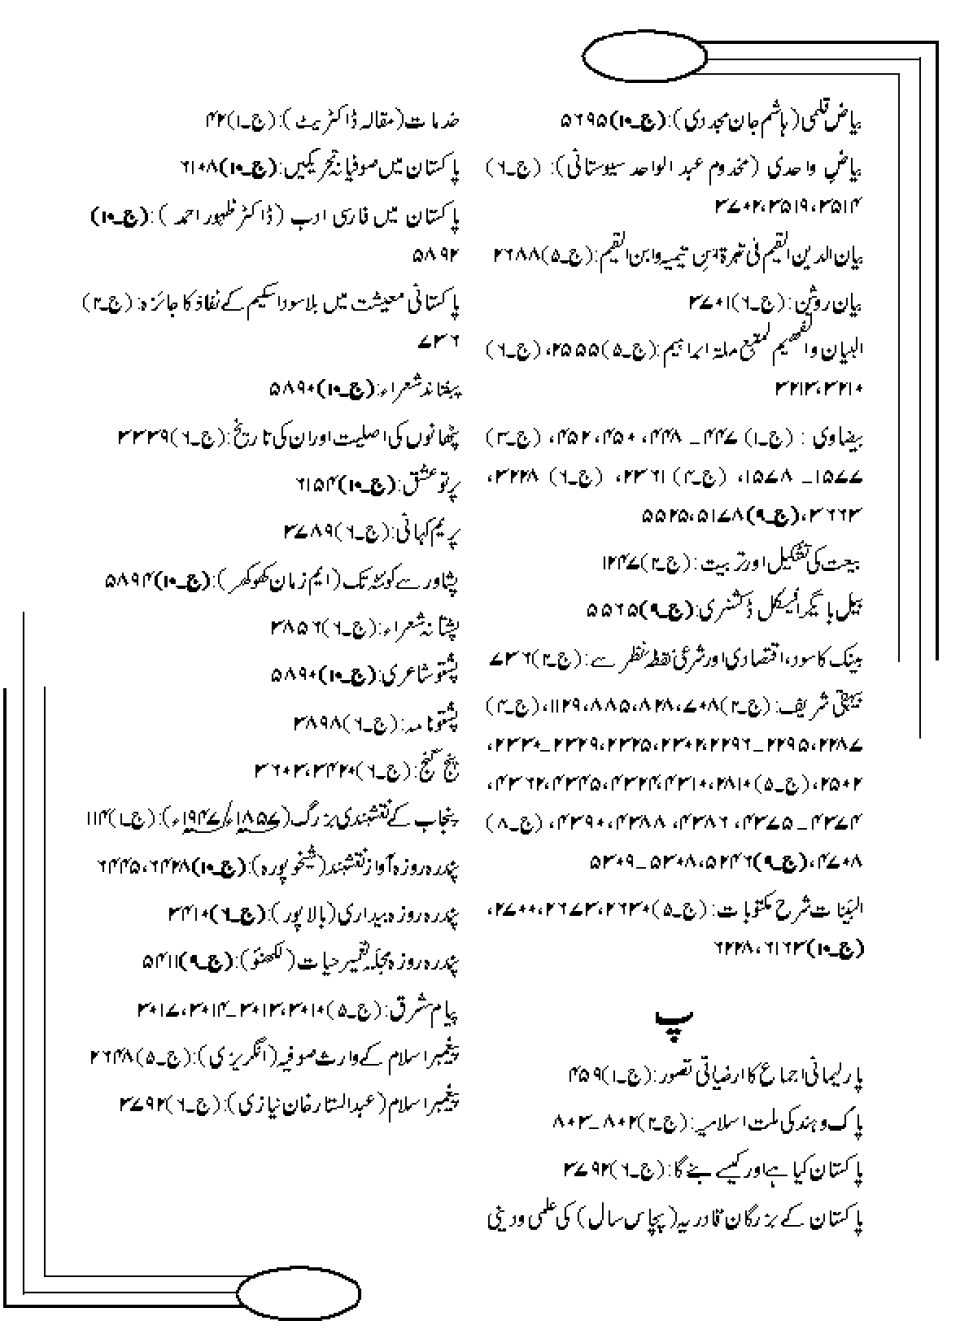 بیاض قلمی (ہاشم جان مجددی): (ج۔۱۰) ۵۶۹۵
بیاضِ واحدی (مخدوم عبد الواحد سیوستانی): (ج۔۶)
۳۵۱۴، ۳۵۱۹، ۳۷۰۲
بیان روشن: (ج۔۶) ۳۷۰۱
۳۲۱۰، ۳۲۱۳
بیضاوی : (ج۔۱) ۴۴۷ ــ ۴۴۸، ۴۵۰، ۴۵۲، (ج۔۳)
۱۵۷۷ ــ ۱۵۷۸، (ج۔۴) ۲۳۶۱، (ج۔۶) ۳۲۲۸،
۳۶۶۳، (ج۔۹) ۵۱۷۸، ۵۵۲۵
بیعت کی تشکیل اور تربیت: (ج۔۲) ۱۲۴۷
ببیل بایگرافیکل ڈکشنری: (ج۔۹) ۵۵۶۵
بینک کا سود، اقتصادی اور شرعی نقطہ نظر سے: (ج۔۲) ۷۳۶
بیہقی شریف: (ج۔۲) ۷۰۸، ۸۲۸، ۸۸۵، ۱۱۲۹، (ج۔۴)
۲۲۸۷، ۲۲۹۵ــ۲۲۹۶، ۲۳۰۲، ۲۳۲۵، ۲۳۲۹ــ۲۳۳۰،
۲۵۰۲، (ج۔۵) ۲۸۱۰، ۴۳۱۰، ۴۳۲۴، ۴۳۴۵، ۴۳۶۲،
۴۳۷۴ــ۴۳۷۵، ۴۳۸۶، ۴۳۸۸، ۴۳۹۰، (ج۔۸)
۴۷۰۸، (ج۔۹) ۵۲۴۶، ۵۳۰۸ــ۵۳۰۹
البینات شرح مکتوبات: (ج۔۵) ۲۶۳۰، ۲۶۷۳، ۲۷۰۰،
(ج۔۱۰) ۶۱۶۳، ۶۲۲۸
پ
پارلیمانی اجماع کا ارضیاتی تصور: (ج۔۱) ۴۵۹
پاک وہند کی ملت اسلامیہ: (ج۔۲) ۸۰۲ــ۸۰۳
پاکستان کیا ہے اور کیسے بنے گا: (ج۔۶) ۳۷۹۲
پاکستان کے بزرگان قادریہ (پچاس سال) کی علمی ودینی
خدمات (مقالہ ڈاکٹریٹ): (ج۔۱) ۴۲
پاکستان میں صوفیانہ تحریکیں: (ج۔۱۰) ۶۱۰۸
پاکستان میں فارسی ادب (ڈاکٹر ظہور احمد): (ج۔۱۰)
۵۸۹۲
پاکستانی معیشت میں بلاسود اسکیم کے نفاذ کا جائزہ: (ج۔۲)
۷۳۶
پشتانہ شعراء: (ج۔۱۰) ۵۸۹۰
پٹھانوں کی اصلیت اور ان کی تاریخ: (ج۔۶) ۳۳۳۹
پرتو عشق: (ج۔۱۰) ۶۱۵۴
پریم کہانی: (ج۔۶) ۳۷۸۹
پشاور سے کوئٹہ تک (ایم زمان کھوکھر): (ج۔۱۰) ۵۸۹۴
پشتانہ شعراء: (ج۔۶) ۳۸۵۶
پشتو شاعری: (ج۔۱۰) ۵۸۹۰
پشتونامہ: (ج۔۶) ۳۸۹۸
پنج گنج: (ج۔۶) ۳۴۲۰، ۳۶۰۳
پنجاب کے نقشبندی بزرگ (۱۸۵۷ء/۱۹۴۷ء): (ج۔۱) ۱۱۴
پندرہ روزہ آواز نقشبند (شیخوپورہ): (ج۔۱۰) ۶۴۲۸، ۶۴۴۵
پندرہ روزہ بیداری (بالاپور): (ج۔۶) ۳۴۱۰
پندرہ روزہ مجلّہ تعمیر حیات (لکھنؤ): (ج۔۹) ۵۴۱۱
پیام مشرق: (ج۔۵) ۳۰۱۰، ۳۰۱۳ــ۳۰۱۴، ۳۰۱۷
پیغمبر اسلام کے وارث صوفیہ (انگریزی): (ج۔۵) ۲۶۴۸
پیغمبر اسلام (عبدالستار خان نیازی): (ج۔۶) ۳۷۹۲